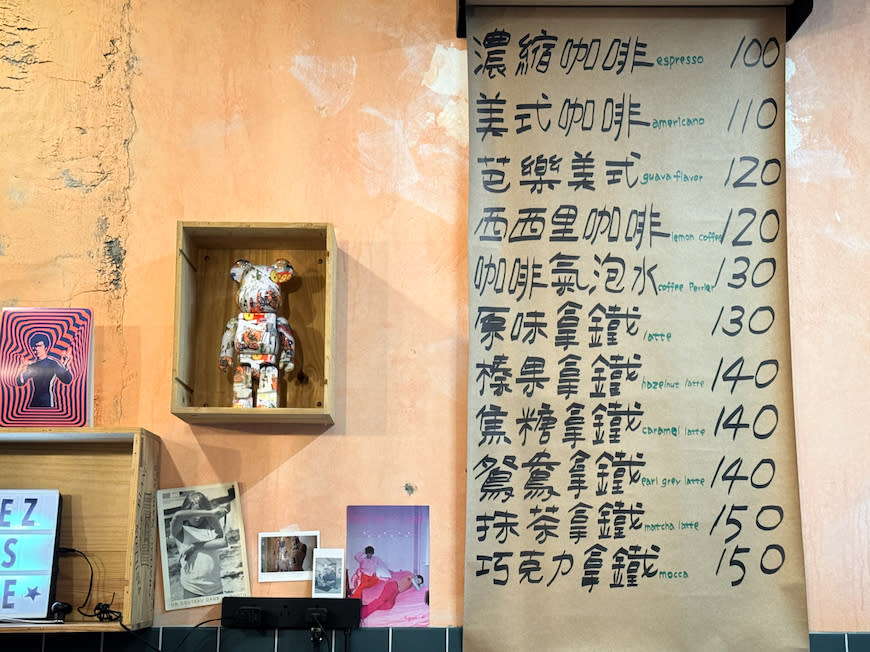 濃縮咖啡 espresso 100
美式咖啡 americano 110
芭樂美式 guava flavor 120
西西里咖啡 lemon coffee 120
咖啡氣泡水 coffee Perrier 130
原味拿鐵 latte 130
榛果拿鐵 hazelnut latte 140
焦糖拿鐵 caramel latte 140
鴛鴦拿鐵 earl grey latte 140
抹茶拿鐵 matcha latte 150
巧克力拿鐵 mocca 150
EZ
S
E★
UN COUTEAU DANS